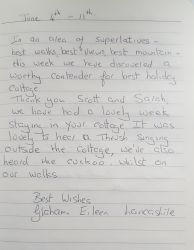 June 4th - 11th
In an area of superlatives -
best walks, best views, best mountain -
this week we have discovered a
worthy contender for best holiday
cottage.
Thank you Scott and Sarah
we have had a lovely week
staying in your cottage. It was
lovely to hear a Thrush singing
outside the cottage, we've also
heard the cuckoo whilst on
our walks.
Best Wishes
Graham Eileen Lancashire